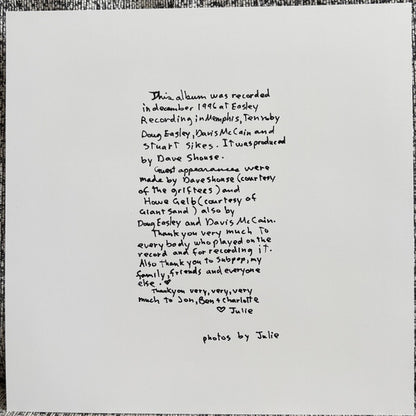 This album was recorded
in december 1996 at Easley
Recording in Memphis, Tenn by
Doug Easley, Davis McCain and
Stuart Sikes. It was produced
by Dave Shouse.
Guest appearances were
made by Dave Shouse (courtesy
of the grifters) and
Howe Gelb (courtesy of
Giant Sand) also by
Doug Easley and Davis McCain.
Thank you very much to
everybody who played on the
record and for recording it.
Also thank you to Subpop, my
family, friends and everyone
else. ♥
Thank you very, very, very
much to Jon, Ben + Charlotte
♡ Julie
photos by Julie